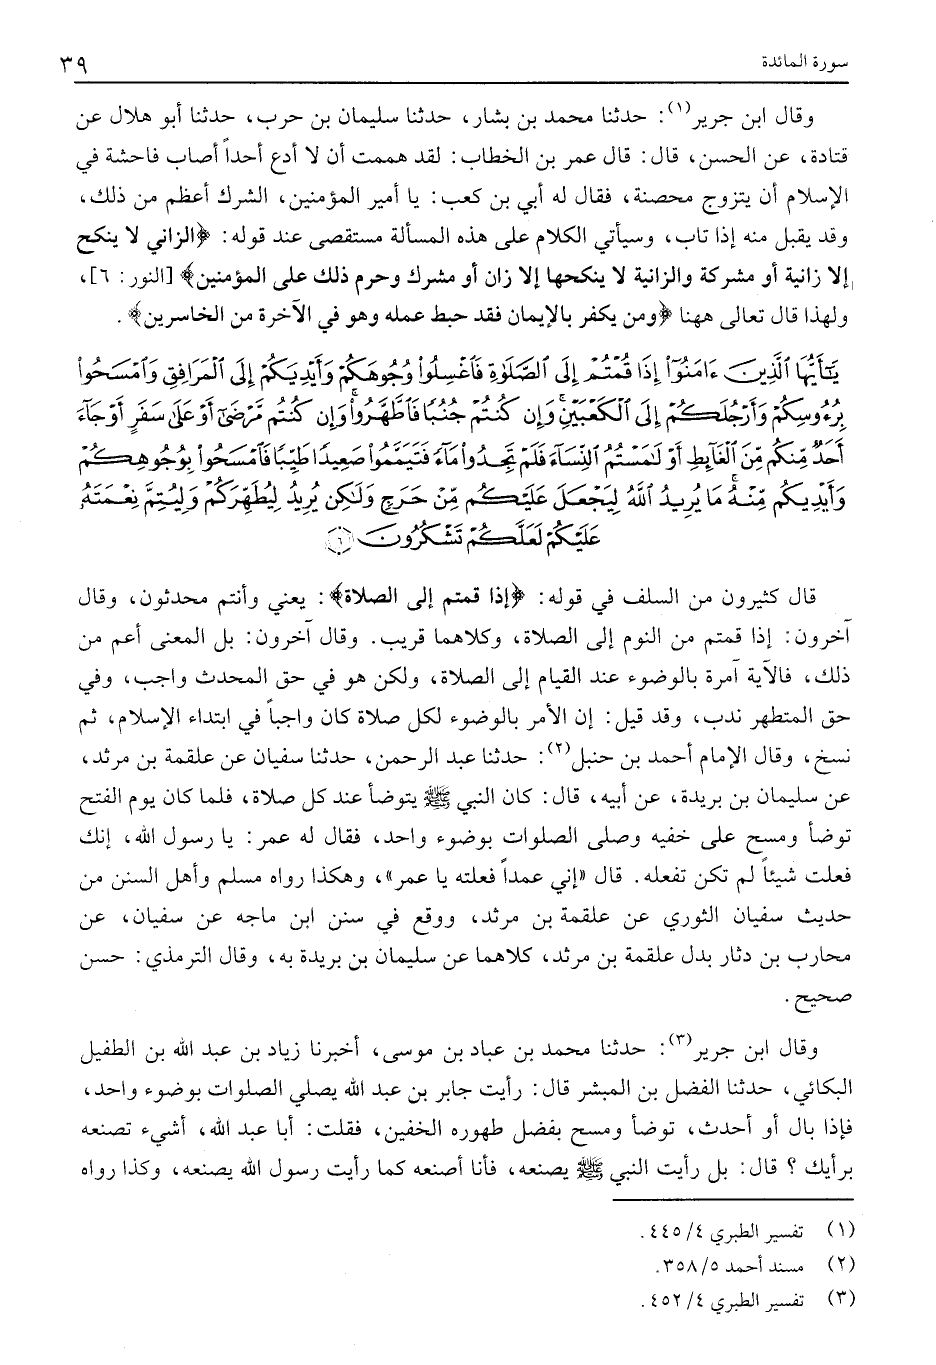 سورة المائدة ٣٩
وقال ابن جرير(١): حدثنا محمد بن بشار، حدثنا سليمان بن حرب، حدثنا أبو هلال عن
قتادة، عن الحسن، قال: قال عمر بن الخطاب: لقد هممت أن لا أدع أحداً أصاب فاحشة في
الإسلام أن يتزوج محصنة، فقال له أبي بن كعب: يا أمير المؤمنين، الشرك أعظم من ذلك،
وقد يقبل منه إذا تاب، وسيأتي الكلام على هذه المسألة مستقصى عند قوله: ﴿الزاني لا ينكح
إلا زانية أو مشركة والزانية لا ينكحها إلا زان أو مشرك وحرم ذلك على المؤمنين﴾ [النور: ٦]،
ولهذا قال تعالى ههنا ﴿ومن يكفر بالإيمان فقد حبط عمله وهو في الآخرة من الخاسرين﴾.
يَٰٓأَيُّهَا ٱلَّذِينَ ءَامَنُوٓا۟ إِذَا قُمْتُمْ إِلَى ٱلصَّلَوٰةِ فَٱغْسِلُوا۟ وُجُوهَكُمْ وَأَيْدِيَكُمْ إِلَى ٱلْمَرَافِقِ وَٱمْسَحُوا۟
بِرُءُوسِكُمْ وَأَرْجُلَكُمْ إِلَى ٱلْكَعْبَيْنِ ۚ وَإِن كُنتُمْ جُنُبًا فَٱطَّهَّرُوا۟ ۚ وَإِن كُنتُم مَّرْضَىٰٓ أَوْ عَلَىٰ سَفَرٍ أَوْ جَآءَ
أَحَدٌ مِّنكُم مِّنَ ٱلْغَآئِطِ أَوْ لَٰمَسْتُمُ ٱلنِّسَآءَ فَلَمْ تَجِدُوا۟ مَآءً فَتَيَمَّمُوا۟ صَعِيدًا طَيِّبًا فَٱمْسَحُوا۟ بِوُجُوهِكُمْ
وَأَيْدِيكُم مِّنْهُ ۚ مَا يُرِيدُ ٱللَّهُ لِيَجْعَلَ عَلَيْكُم مِّنْ حَرَجٍ وَلَٰكِن يُرِيدُ لِيُطَهِّرَكُمْ وَلِيُتِمَّ نِعْمَتَهُۥ
عَلَيْكُمْ لَعَلَّكُمْ تَشْكُرُونَ ٦
قال كثيرون من السلف في قوله: ﴿إذا قمتم إلى الصلاة﴾: يعني وأنتم محدثون، وقال
آخرون: إذا قمتم من النوم إلى الصلاة، وكلاهما قريب. وقال آخرون: بل المعنى أعم من
ذلك، فالآية آمرة بالوضوء عند القيام إلى الصلاة، ولكن هو في حق المحدث واجب، وفي
حق المتطهر ندب، وقد قيل: إن الأمر بالوضوء لكل صلاة كان واجباً في ابتداء الإسلام، ثم
نسخ، وقال الإمام أحمد بن حنبل(٢): حدثنا عبد الرحمن، حدثنا سفيان عن علقمة بن مرثد،
عن سليمان بن بريدة، عن أبيه، قال: كان النبي ﷺ يتوضأ عند كل صلاة، فلما كان يوم الفتح
توضأ ومسح على خفيه وصلى الصلوات بوضوء واحد، فقال له عمر: يا رسول الله، إنك
فعلت شيئاً لم تكن تفعله. قال «إني عمداً فعلته يا عمر»، وهكذا رواه مسلم وأهل السنن من
حديث سفيان الثوري عن علقمة بن مرثد، ووقع في سنن ابن ماجه عن سفيان، عن
محارب بن دثار بدل علقمة بن مرثد، كلاهما عن سليمان بن بريدة به، وقال الترمذي: حسن
صحيح.
وقال ابن جرير(٣): حدثنا محمد بن عباد بن موسى، أخبرنا زياد بن عبد الله بن الطفيل
البكائي، حدثنا الفضل بن المبشر قال: رأيت جابر بن عبد الله يصلي الصلوات بوضوء واحد،
فإذا بال أو أحدث، توضأ ومسح بفضل طهوره الخفين، فقلت: أبا عبد الله، أشيء تصنعه
برأيك؟ قال: بل رأيت النبي ﷺ يصنعه، فأنا أصنعه كما رأيت رسول الله يصنعه، وكذا رواه
(١) تفسير الطبري ٤/ ٤٤٥.
(٢) مسند أحمد ٥/ ٣٥٨.
(٣) تفسير الطبري ٤/ ٤٥٢.